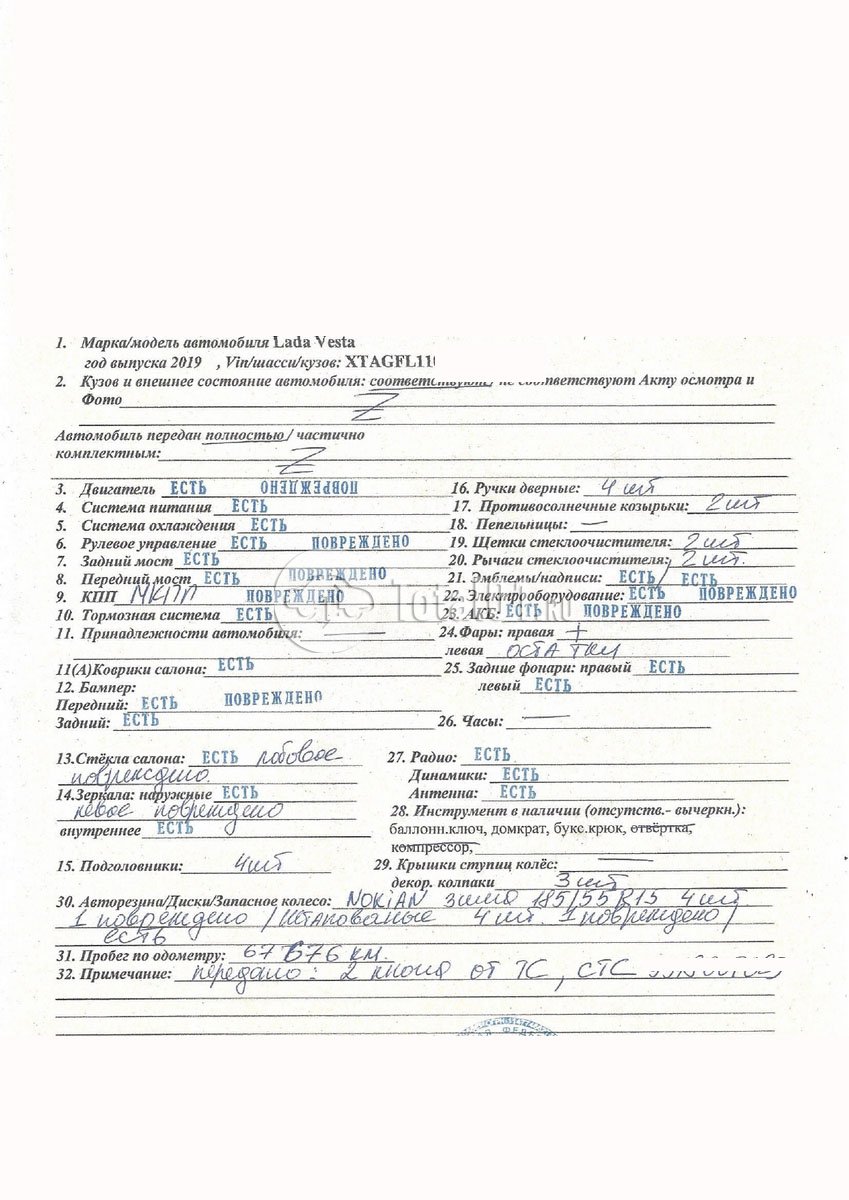 1. Марка/модель автомобиля Lada Vesta
год выпуска 2019 , Vin/шасси/кузов: XTAGFL11
2. Кузов и внешнее состояние автомобиля: соответствуют, не соответствуют Акту осмотра и
Фото Z
Автомобиль передан полностью / частично
комплектным: Z
3. Двигатель ЕСТЬ ПОВРЕЖДЕНО
4. Система питания ЕСТЬ
5. Система охлаждения ЕСТЬ
6. Рулевое управление ЕСТЬ ПОВРЕЖДЕНО
7. Задний мост ЕСТЬ
8. Передний мост ЕСТЬ ПОВРЕЖДЕНО
9. КПП МКПП ПОВРЕЖДЕНО
10. Тормозная система ЕСТЬ
11. Принадлежности автомобиля: —
11(А)Коврики салона: ЕСТЬ
12. Бампер:
Передний: ЕСТЬ ПОВРЕЖДЕНО
Задний: ЕСТЬ
16. Ручки дверные: 4 шт
17. Противосолнечные козырьки: 2 шт
18. Пепельницы: —
19. Щетки стеклоочистителя: 2 шт
20. Рычаги стеклоочистителя: 2 шт.
21. Эмблемы/надписи: ЕСТЬ / ЕСТЬ
22. Электрооборудование: ЕСТЬ ПОВРЕЖДЕНО
23. АКБ: ЕСТЬ ПОВРЕЖДЕНО
24. Фары: правая +
левая остатки
25. Задние фонари: правый ЕСТЬ
левый ЕСТЬ
26. Часы: —
13.Стёкла салона: ЕСТЬ лобовое
повреждено
14.Зеркала: наружные ЕСТЬ
левое повреждено
внутреннее ЕСТЬ
15. Подголовники: 4шт
27. Радио: ЕСТЬ
Динамики: ЕСТЬ
Антенна: ЕСТЬ
28. Инструмент в наличии (отсутств.- вычеркн.):
баллонн.ключ, домкрат, букс.крюк, отвёртка,
компрессор,
29. Крышки ступиц колёс: —
декор. колпаки 3 шт
30. Авторезина/Диски/Запасное колесо: NOKIAN зима 185/55 R15 4 шт.
1 повреждено / штапованые 4 шт. 1 повреждено /
есть
31. Пробег по одометру: 67 676 км.
32. Примечание: передано: 2 ключа от ТС, СТС